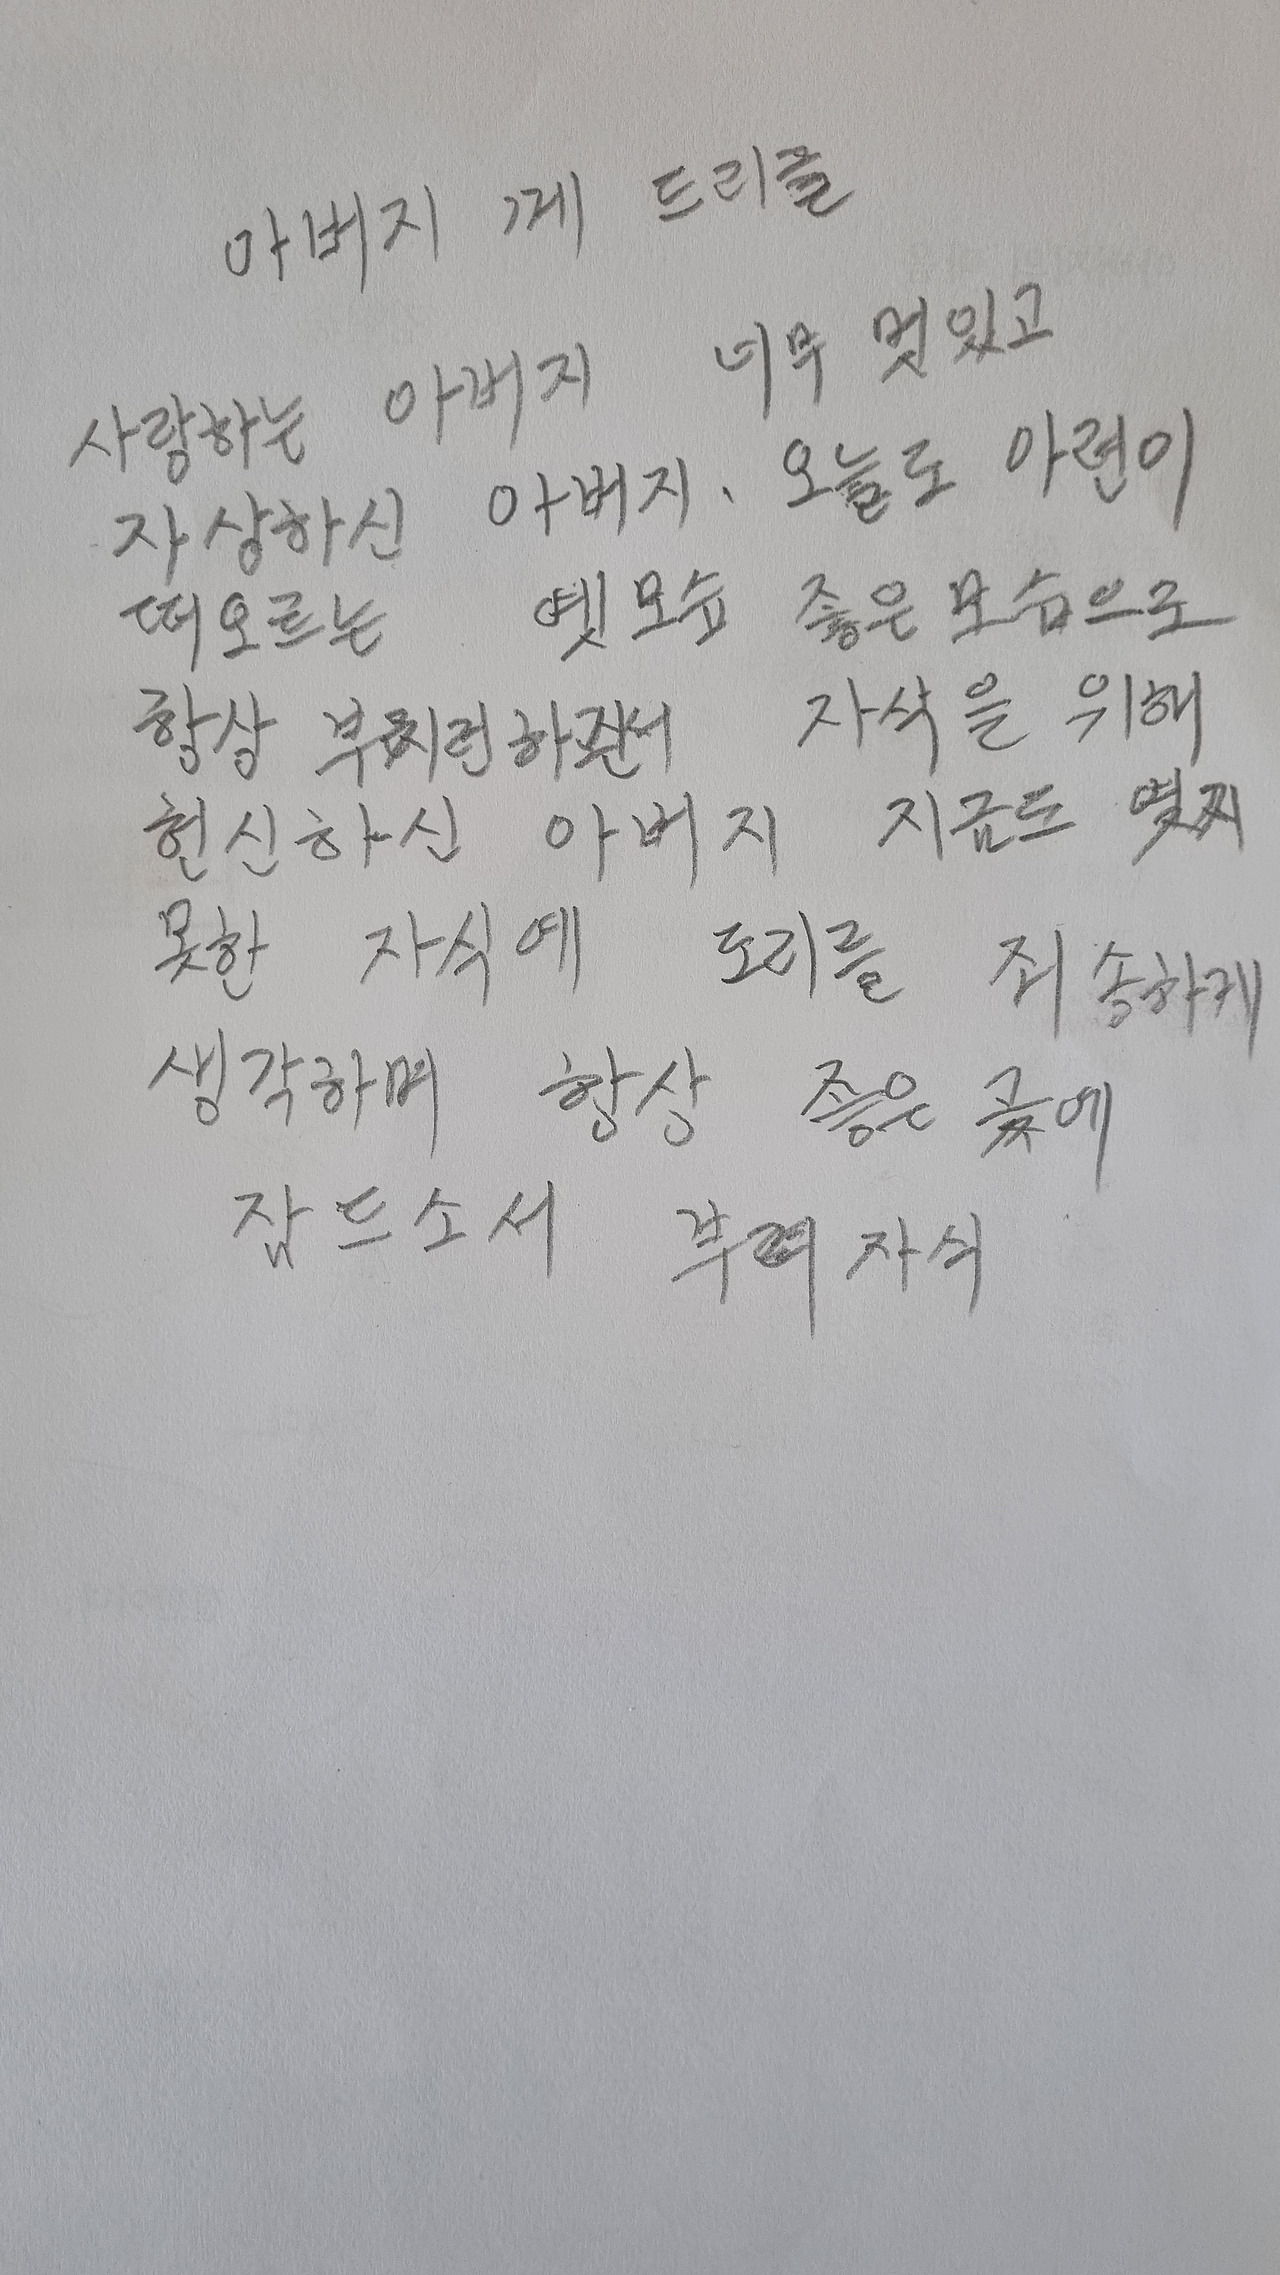 아버지 께 드리글
사랑하는 아버지 너무 멋있고
자상하신 아버지. 오늘도 아련이
떠오르는 옛모습 좋은모습으로
항상 자식을 위해
헌신하신 아버지 지금도
못한 자식에 도리를 죄송하게
생각하며 항상 좋은 곳에
잠드소서 자식